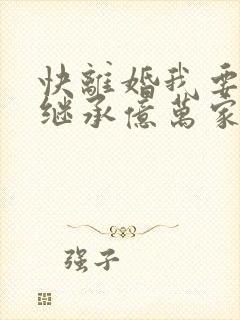 快離婚我要
继承億萬家
强子